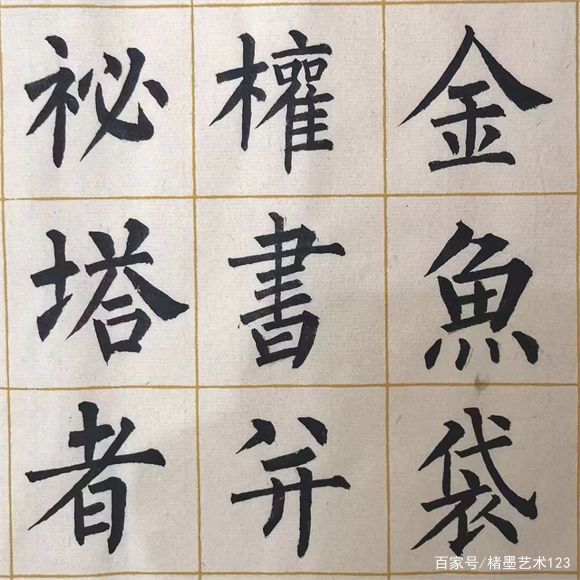 金魚袋
權書并
祕塔者
百家号/楮墨艺术123